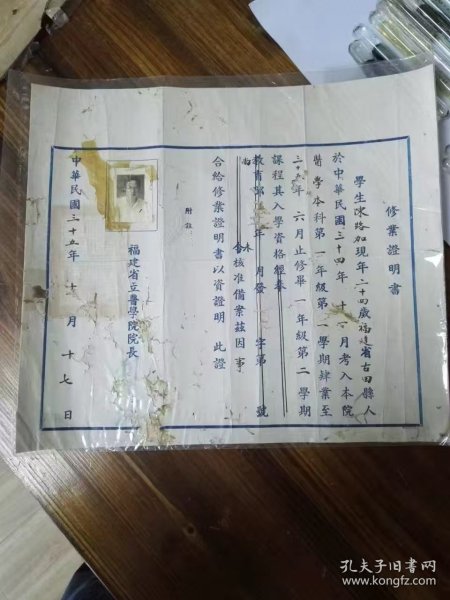 修業證明書
學生 路加現年二十四歲福建省古田縣人
於中華民國三十四年十 月考入本院
醫學本科第一年級第一學期肄業至
三十五年六月止修畢一年級第二學期
課程其入學資格經奉
教育部 年 月發 字第 號
令核准備案茲因事
合給修業證明書以資證明 此證
附註
福建省立醫學院院長
中華民國三十五年十 月十七日
孔夫子旧书网
www.kongfz.com